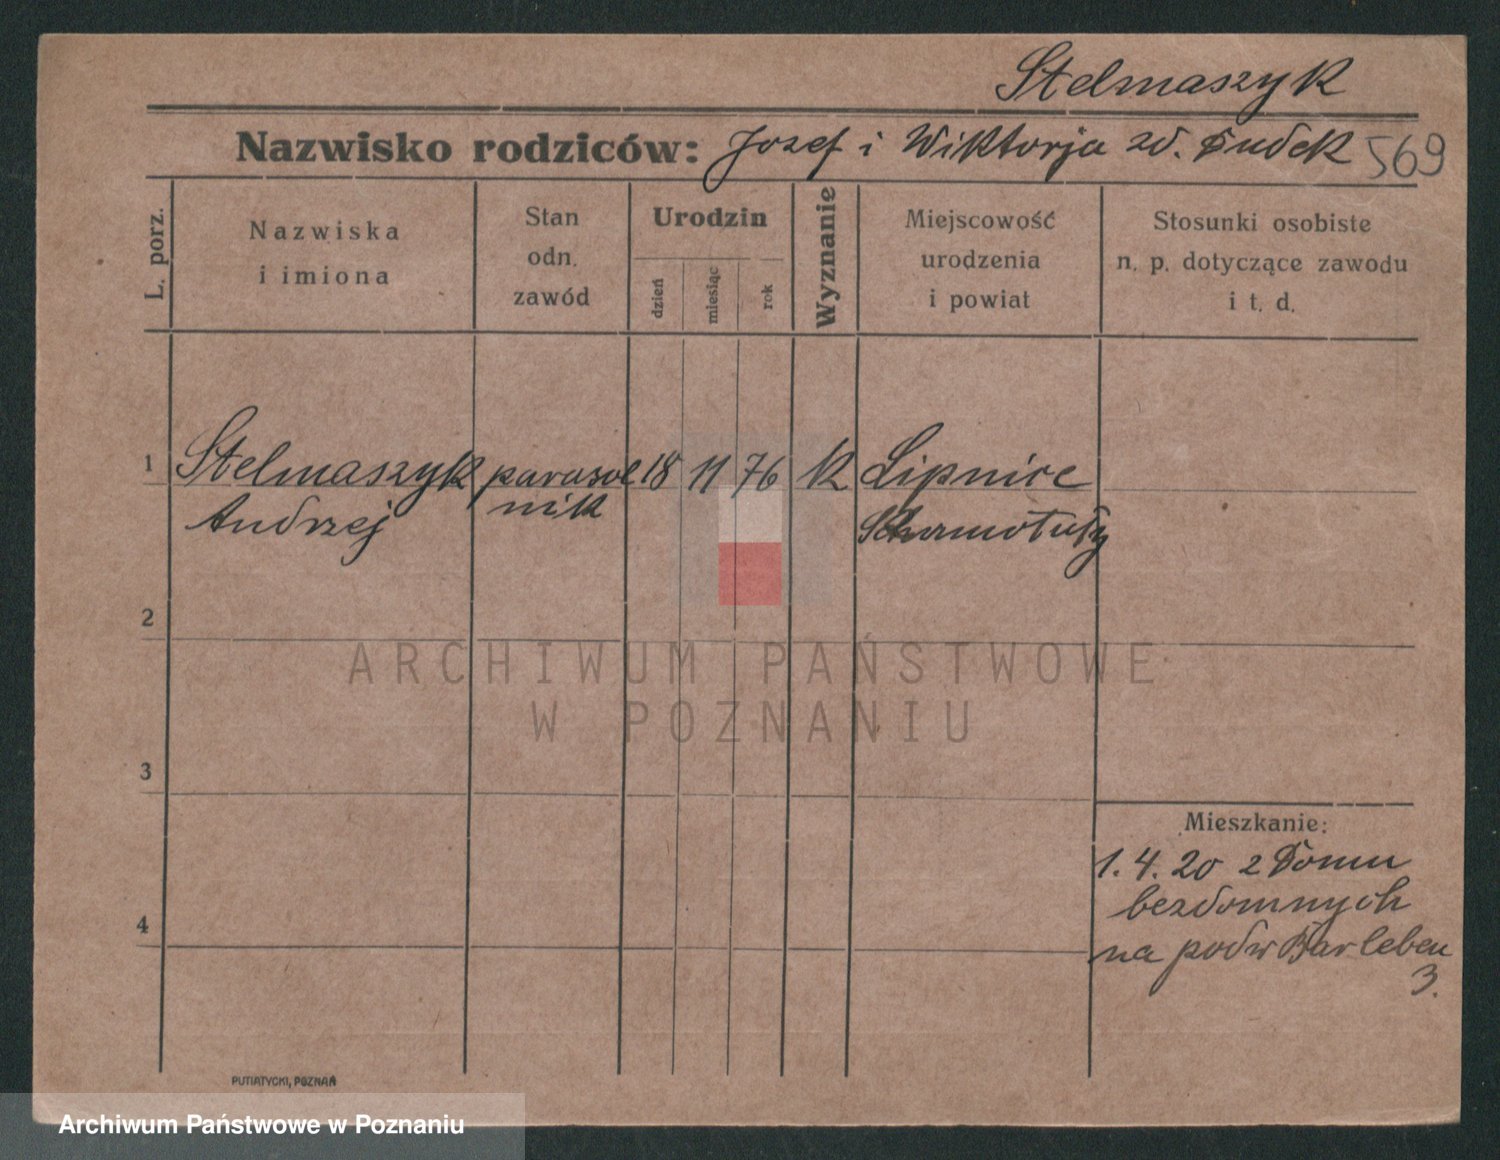 Stelmaszyk
Nazwisko rodziców: Jozef i Wiktorja zd. Dudek 569
L. porz.
Nazwiska
i imiona
Stan
odn.
zawód
Urodzin
dzień
miesiąc
rok
Wyznanie
Miejscowość
urodzenia
i powiat
Stosunki osobiste
n. p. dotyczące zawodu
i t. d.
1 Stelmaszyk parasol 18 11 76 k Lipnice
Andrzej nik Schamotuły
2
ARCHIWUM PAŃSTWOWE
W POZNANIU
3
Mieszkanie:
1. 4. 20 z Domu
bezdomnych
4
na podw Barleben
3.
PUTIATYCKI, POZNAŃ
Archiwum Państwowe w Poznaniu